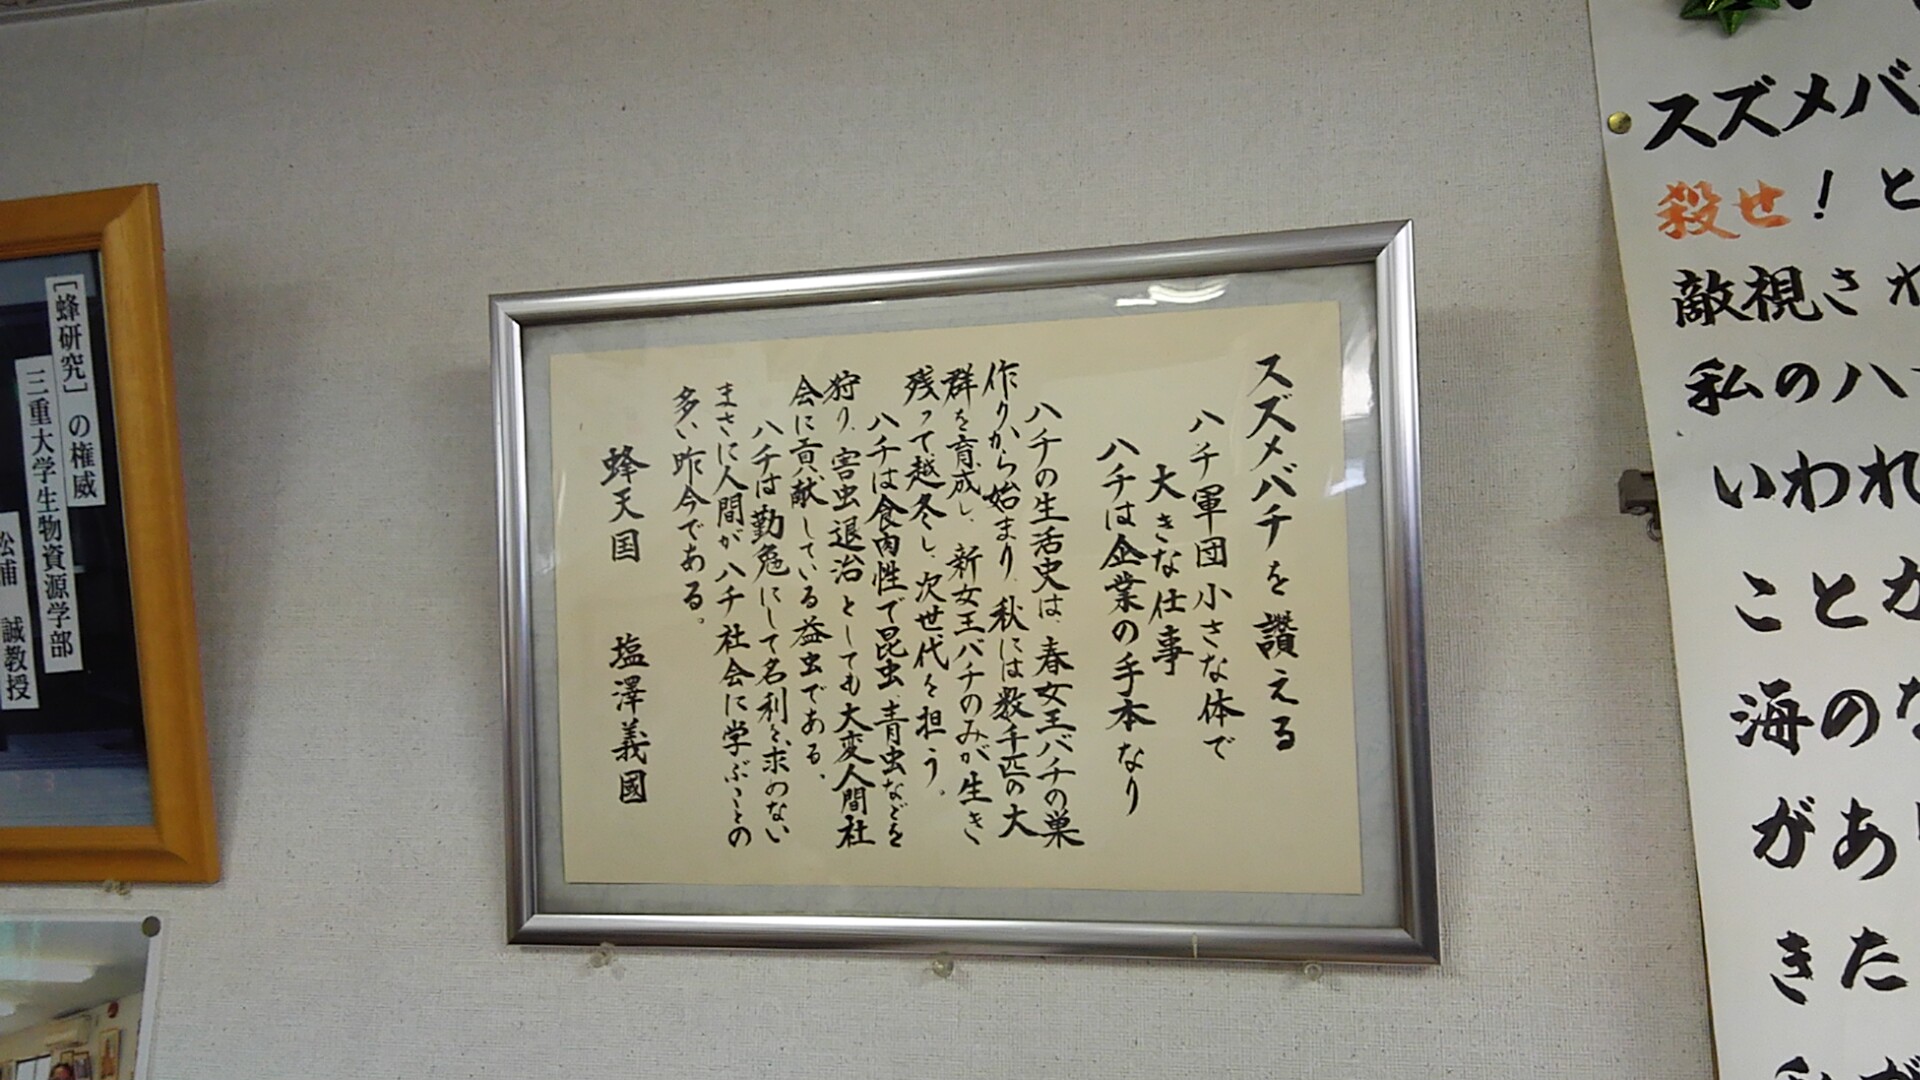 スズメバチを讃える
ハチ軍団 小さな体で
大きな仕事
ハチは企業の手本なり
ハチの生活史は、春女王バチの巣
作りから始まり、秋には数千匹の大
群を育成し、新女王バチのみが生き
残って越冬し、次世代を担う。
ハチは食肉性で昆虫、青虫などを
狩り、害虫退治としても大変人間社
会に貢献している益虫である、
ハチは勤勉にして名利を求めない
まさに人間がハチ社会に学ぶことの
多い昨今である。
蜂天国 塩澤義國
スズメバ
殺せ!と
敵視され
私のハ
いわれ
ことか
海のな
があ
きた
[蜂研究]の権威
三重大学生物資源学部
松浦 誠教授